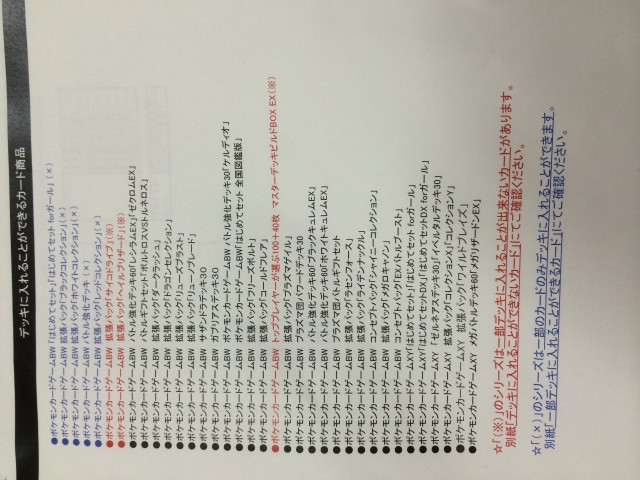 デッキに入れることができるカード商品
●ポケモンカードゲームBW 「はじめてセット」「はじめてセット forガール」(×)
●ポケモンカードゲームBW 拡張パック「ブラックコレクション」(×)
●ポケモンカードゲームBW 拡張パック「ホワイトコレクション」(×)
●ポケモンカードゲームBW バトル強化デッキ(×)
●ポケモンカードゲームBW 拡張パック「レッドコレクション」(×)
●ポケモンカードゲームBW 拡張パック「サイコドライブ」(※)
●ポケモンカードゲームBW 拡張パック「ヘイルブリザード」(※)
●ポケモンカードゲームBW バトル強化デッキ60「レシラムEX」「ゼクロムEX」
●ポケモンカードゲームBW バトルギフトセット「ボルトロスVSトルネロス」
●ポケモンカードゲームBW 拡張パック「ダークラッシュ」
●ポケモンカードゲームBW 拡張パック「ドラゴンセレクション」
●ポケモンカードゲームBW 拡張パック「リューズブラスト」
●ポケモンカードゲームBW 拡張パック「リューノブレード」
●ポケモンカードゲームBW サザンドラデッキ30
●ポケモンカードゲームBW ガブリアスデッキ30
●ポケモンカードゲームBW ポケモンカードゲームBW バトル強化デッキ30「ケルディオ」
●ポケモンカードゲームBW ポケモンカードゲームBW「はじめてセット 全国図鑑版」
●ポケモンカードゲームBW 拡張パック「フリーズボルト」
●ポケモンカードゲームBW 拡張パック「コールドフレア」
●ポケモンカードゲームBW トッププレイヤーが選ぶ100+40枚 マスターデッキビルドBOX EX(※)
●ポケモンカードゲームBW 拡張パック「プラズマゲイル」
●ポケモンカードゲームBW プラズマ団パワードデッキ30
●ポケモンカードゲームBW バトル強化デッキ60「ブラックキュレムEX」
●ポケモンカードゲームBW バトル強化デッキ60「ホワイトキュレムEX」
●ポケモンカードゲームBW プラズマ団バトルギフトセット
●ポケモンカードゲームBW 拡張パック「ラセンフォース」
●ポケモンカードゲームBW 拡張パック「ライデンナックル」
●ポケモンカードゲームBW コンセプトパック「シャイニーコレクション」
●ポケモンカードゲームBW 拡張パック「メガロキャノン」
●ポケモンカードゲームBW コンセプトパック「EXバトルブースト」
●ポケモンカードゲームXY「はじめてセット」「はじめてセット forガール」
●ポケモンカードゲームXY「はじめてセットDX」「はじめてセットDX forガール」
●ポケモンカードゲームXY 「ゼルネアスデッキ30」「イベルタルデッキ30」
●ポケモンカードゲームXY 拡張パック「コレクションX」「コレクションY」
●ポケモンカードゲームXY 拡張パック「ワイルドブレイズ」
●ポケモンカードゲームXY メガバトルデッキ60「メガリザードンEX」
☆「(※)」のシリーズは一部デッキに入れることが出来ないカードがあります。
別紙「デッキに入れることができないカード」にてご確認ください。
☆「(×)」のシリーズは一部のカードのみデッキに入れることができます。
別紙「一部デッキに入れることができるカード」にてご確認ください。